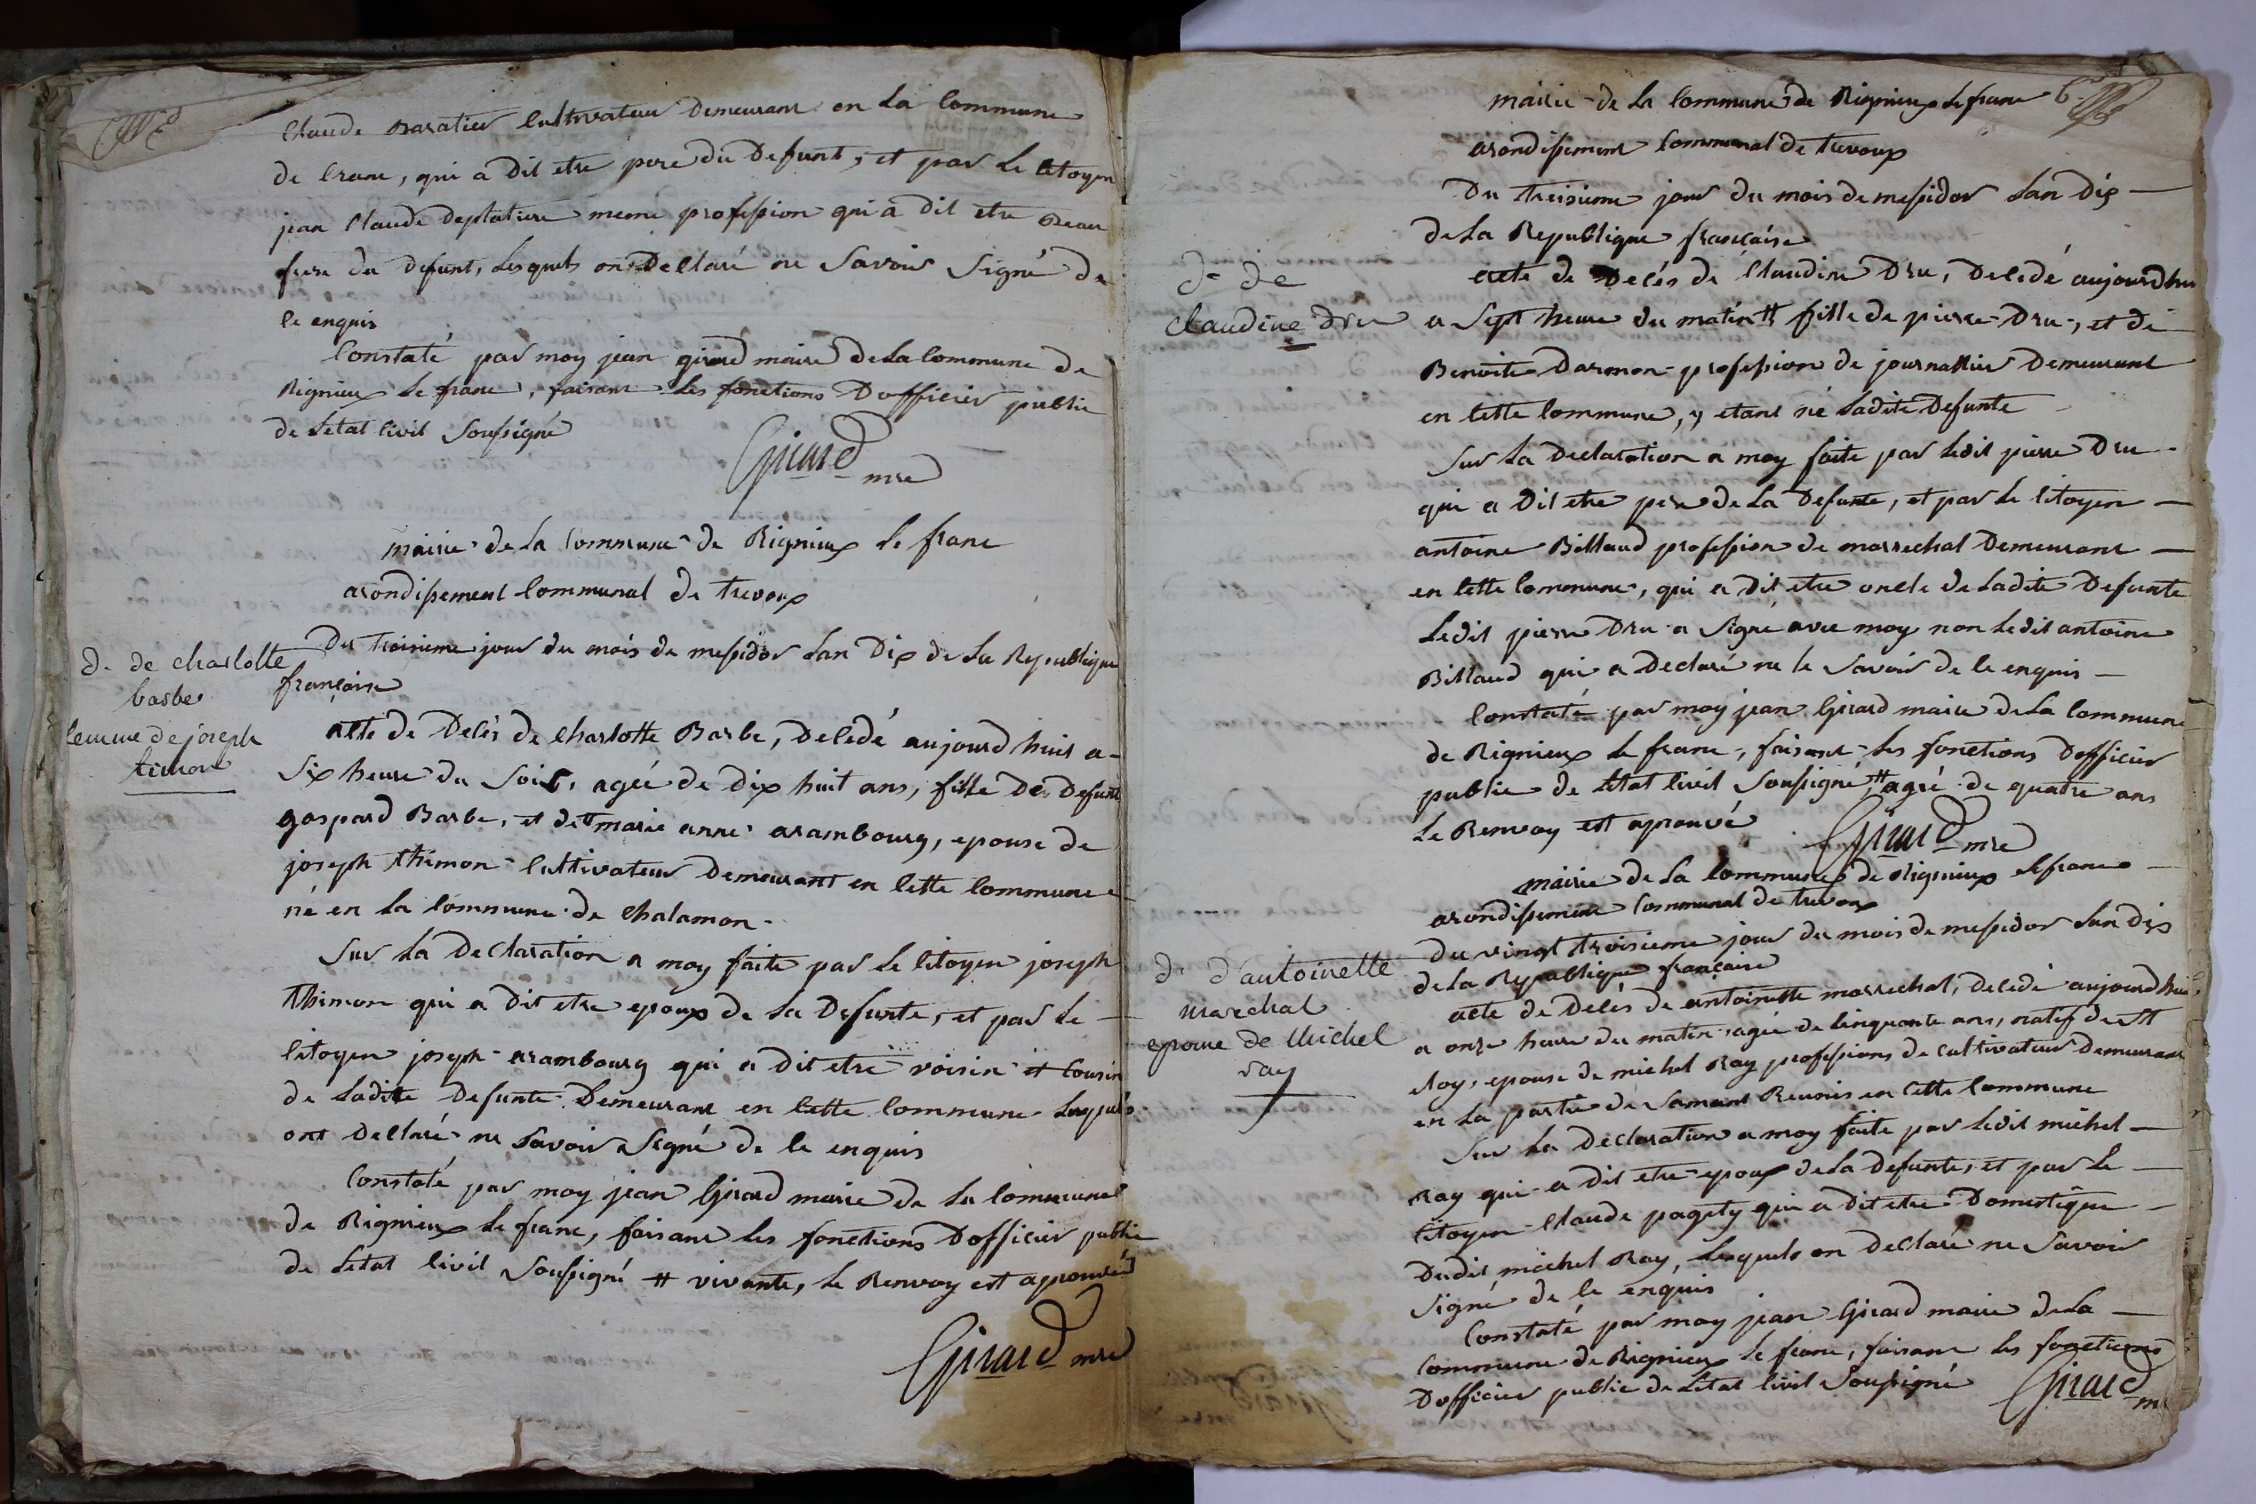 Claude Baratier Cultivateur Demeurant en La Commune
de Crane, qui a Dit etre pere du Defunt, et par Le Citoyen
jean Claude Deplatiere meme profession qui a dit etre Beau
frere du defunt, Lesquels on Declaré ne Savoir Signé de
ce enquis
Constaté par moy jean girard maire De La Commune de
Rignieux Le franc, faisant les fonctions D'officier public
de Letat Civil Soussigné
Girard mre
mairie de La Commune de Rignieux le franc
arondissement Communal de trevoux
d. de charlotte
barbe
femme de joseph
timon
Du troisieme jour du mois de messidor Lan Dix de La Republique
françoise
acte de Decés de Charlotte Barbe, Decedé aujourd huit a
Six heure du Soir, agée de Dix huit ans, fille De Defunt
gaspard Barbe, et de # marie anne arambourg, epouse de
joseph thimon Cultivateur Demeurant en Cette Commune
né en La Commune de Chalamon
Sur La Declaration a moy faite par Le Citoyen joseph
thimon qui a Dit etre epoux de La Defunte, et par Le
Citoyen joseph arambourg qui a Dit etre voisin et Cousin
de Ladite Defunte Demeurant en Cette Commune Lesquels
ont Declaré ne Savoir Signé de Ce enquis
Constaté par moy jean Girard maire de La Commune
de Rignieux Le franc, faisant les fonctions D'officier public
de Letat Civil Soussigné # vivante, Le Renvoy est aprouvé
Girard mre
mairie de La Commune de Rignieux Le franc 6
arondissement Communal de trevoux
Du treisieme jour du mois de messidor Lan Dix
de La Republique francaise
d. de
Claudine Dru
acte de Decés de Claudine Dru, Decedé aujourdhui
a Sept heure du matin # fille de pierre Dru, et de
Benoite Darmon profession de journallier Demeurant
en Cette Commune, y etant né Ladite Defunte
Sur La Declaration a moy faite par Ledit pierre Dru
qui a Dit etre pere de La Defunte, et par Le Citoyen
antoine Billaud profession de marrechal Demeurant
en Cette Commune, qui a Dit etre oncle de Ladite Defunte
Ledit pierre Dru a Signé avec moy non Ledit antoine
Billaud qui a Declaré ne le Savoir de Ce enquis
Constaté par moy jean Girard maire de La Commune
de Rignieux Le franc, faisant les fonctions D'officier
public de Letat Civil Soussigné, # agée de quatre ans
Le Renvoy est aprouvé
Girard mre
mairie de La Commune de Rignieux Le franc
arondissement Communal de trevoux
Du vingt troisieme jour du mois de messidor Lan Dix
de La Republique française
d. d'antoinette
marechal
epouse de Michel
ray
acte de Decés de antoinette marrechal, Decedé aujourdhui
a onze heure du matin agée de Cinquante ans, natif de St
eloy, epouse de michel Ray professions de Cultivateur Demeurant
en La partie de Samans Reunies en Cette Commune
Sur La Declaration a moy faite par Ledit michel
Ray qui a dit etre epoux de La Defunte, et par Le
Citoyen Claude pagety qui a Dit etre Domestique
Dudit michel Ray, Lesquels on declaré ne Savoir
Signé de Ce enquis
Constaté par moy jean Girard maire de La
Commune de Rignieux Le franc, faisant les fonctions
D'officier public de Letat Civil Soussigné
Girard m